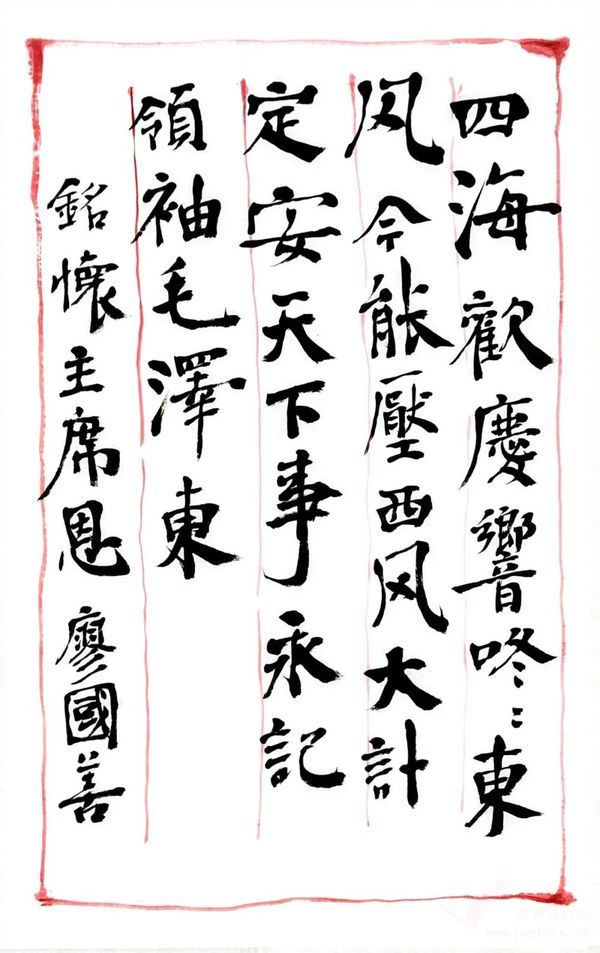 四海歡慶響咚〻東
风今能壓西风大計
定安天下事永記
領袖毛澤東
銘懷主席恩 廖國善
养老信息网
www.yanglaocn.com